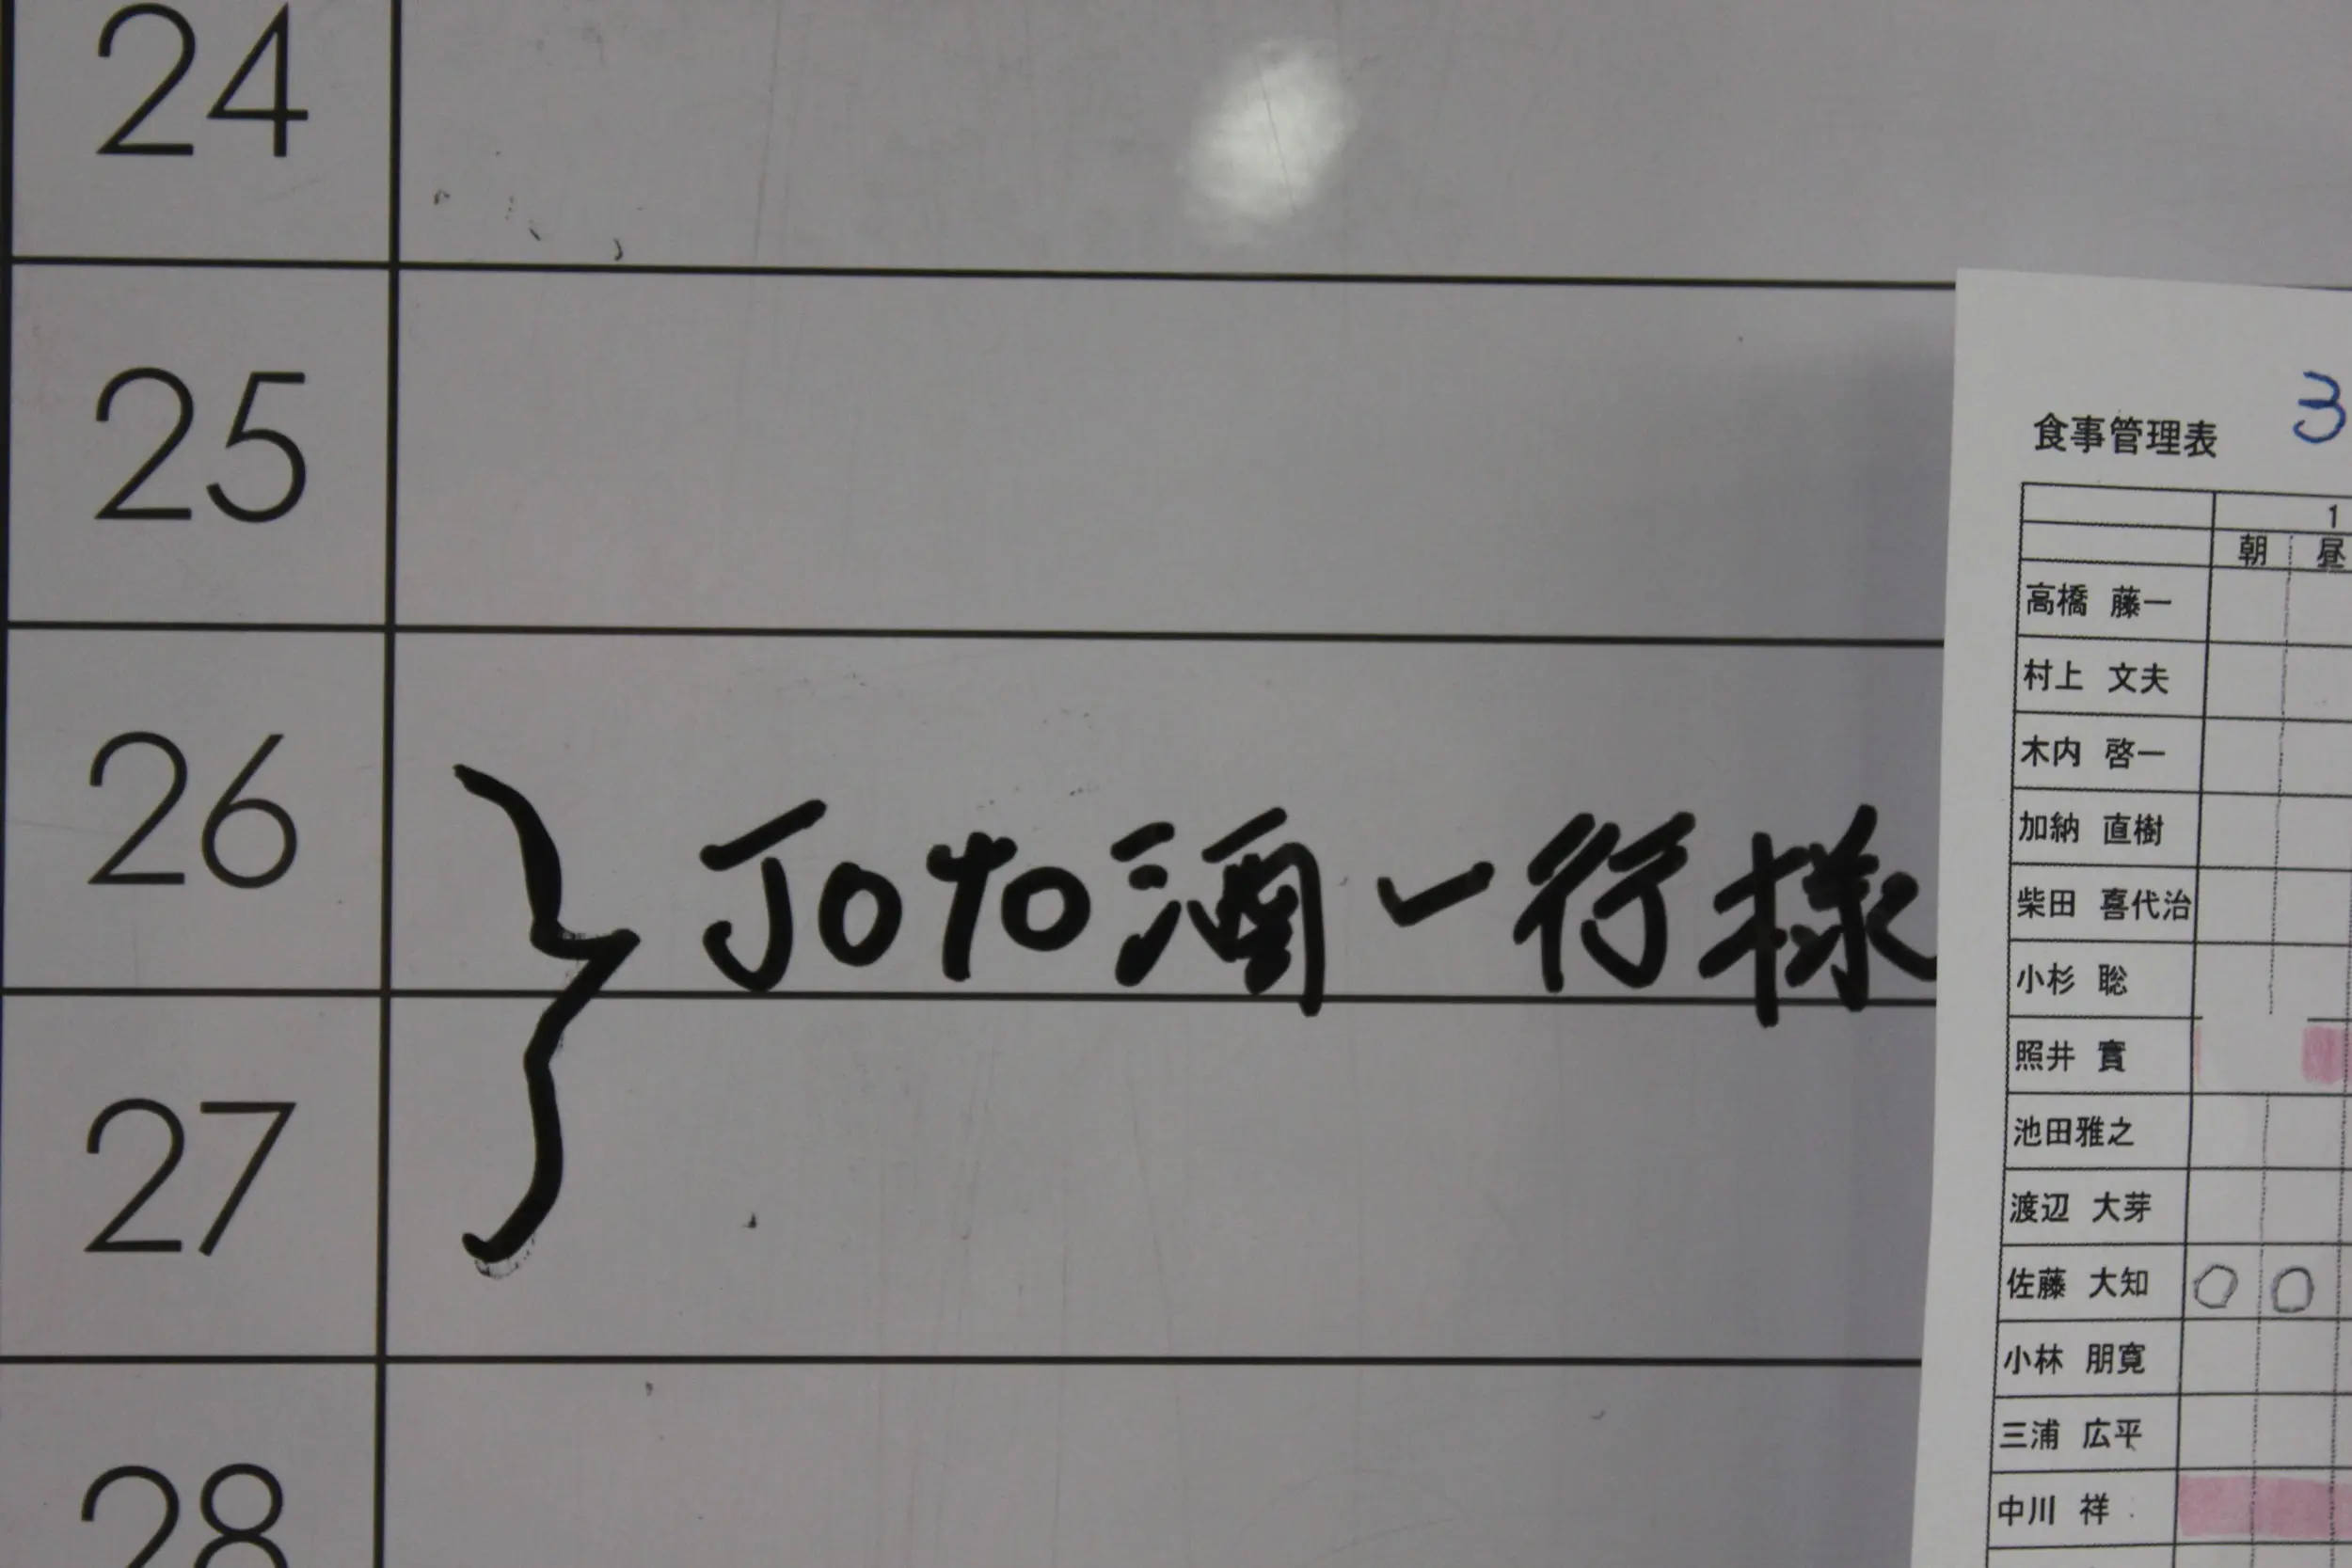 24
25
26
JOTO酒一行様
27
28
食事管理表 3
1
朝 昼
高橋 藤一
村上 文夫
木内 啓一
加納 直樹
柴田 喜代治
小杉 聡
照井 實
池田雅之
渡辺 大芽
佐藤 大知 ○ ○
小林 朋寛
三浦 広平
中川 祥